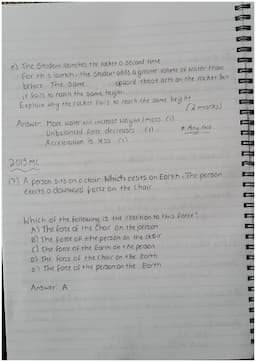 e) The Student launches the rocket a second time.
For this launch, the student adds a greater volume of water than
before. The same upward thrust acts on the rocket but
it fails to reach the same height.
Explain why the rocket fails to reach the same height.
[2 marks]
Answer: More water will increase weight/mass (1)
Unbalanced force decreases (1) * Any two
Acceleration is less (1)
2015 MC
17) A person sits on a chair which rests on Earth. The person
exerts a downward force on the chair.
Which of the following is the reaction to this force?
A) The force of the chair on the person
B) The force of the person on the chair
C) The force of the Earth on the person
D) The force of the chair on the Earth
E) The force of the person on the Earth
Answer: A